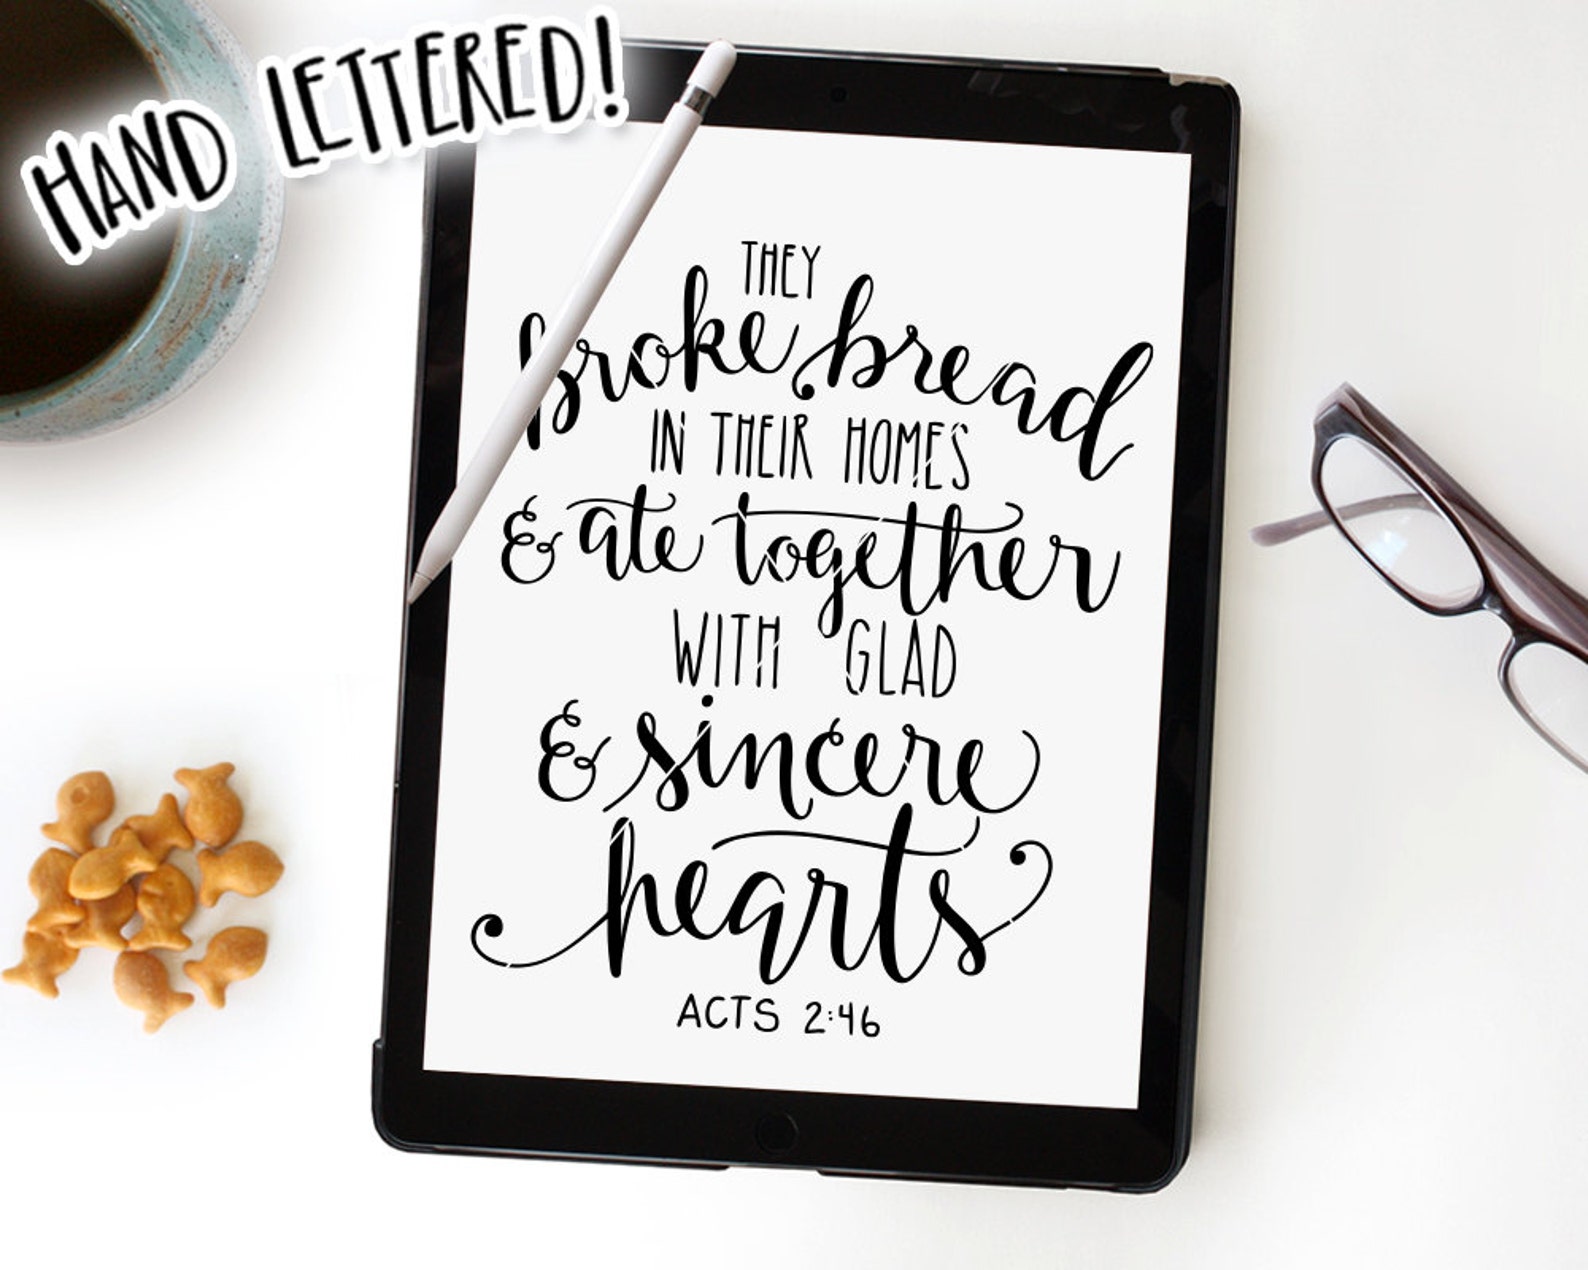 HAND LETTERED!
THEY
broke bread
IN THEIR HOMES
& ate together
WITH GLAD
& sincere
hearts
ACTS 2:46